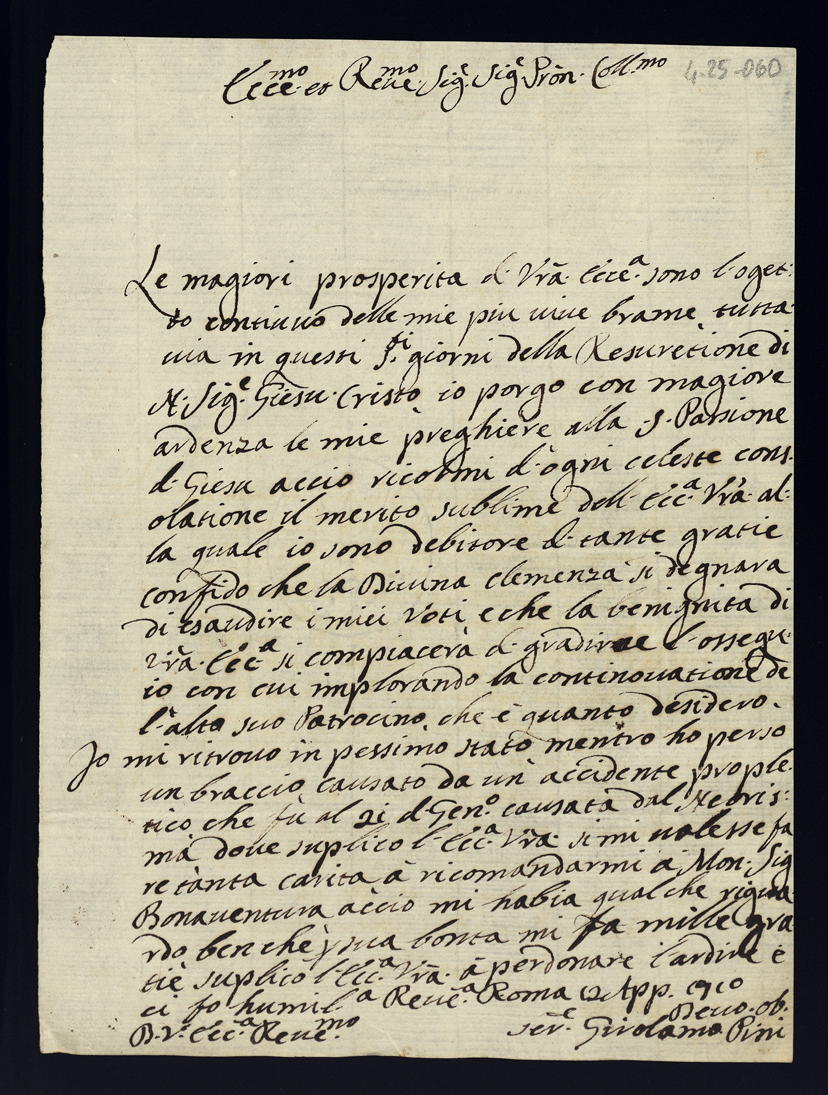 Ecce.mo et Reue.mo Sig.e Sig.e Prõn. Coll.mo 4-25-060
Le magiori prosperita d. Vrã. Ecce.a sono l. oget:
to continuo delle mie piu uiue brame tutta
uia in questi S.ti giorni della Resuretione di
N. Sig.e Giesu. Cristo io porgo con magiore
ardenza le mie preghiere alla S. Passione
d. Giesu accio ricolmi d. ogni celeste cons.
olatione il merito sublime dell. Ecc.a Vrã. al:
la quale io sono debitore d. tante gratie
confido che la Diuina clemenza si degnara
di esaudire i miei Voti e che la benignita di
Vrã. Ecc.a si compiacerà d. gradirne l. ossequ:
io con cui implorando la continouatione de
l. alto suo Patrocino che è quanto desidero.
Jo mi ritrouo in pessimo stato mentro ho perso
un braccio causato da un accidente prople:
tico che fù al 21 d. Gen.o causata dal
mà doue suplico l. Ecc.a Vrã. si mi ualesse fa
re tànta carita à ricomandarmi à Mon. Sig
Bonauentura accio mi habia qualche rigua
rdo ben che p sua bonta mi fa mille gra
tie suplico l. Ecc.a Vrã. à perdonare l'ardire e
ci fo humil.a Reue.a Roma 12 App. 1710
D. V. Ecc.a Reue.mo Deuo. ob.
ser.e Girolamo Pini